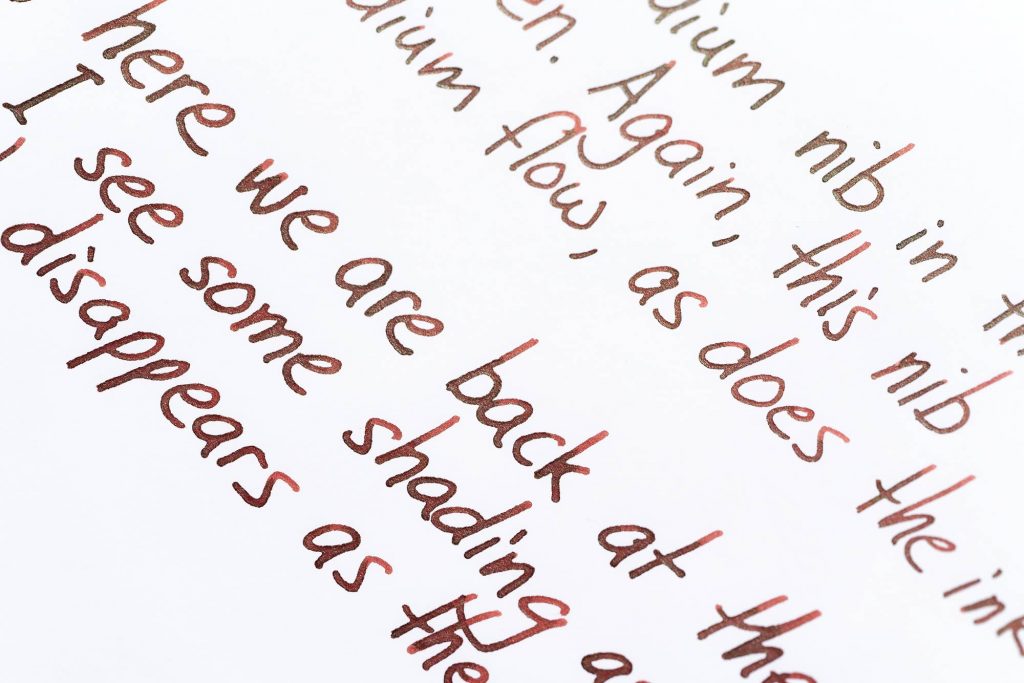 dium nib in th
en. Again, this nib
dium flow, as does the ink
here we are back at the
I see some shading a
, disappears as the